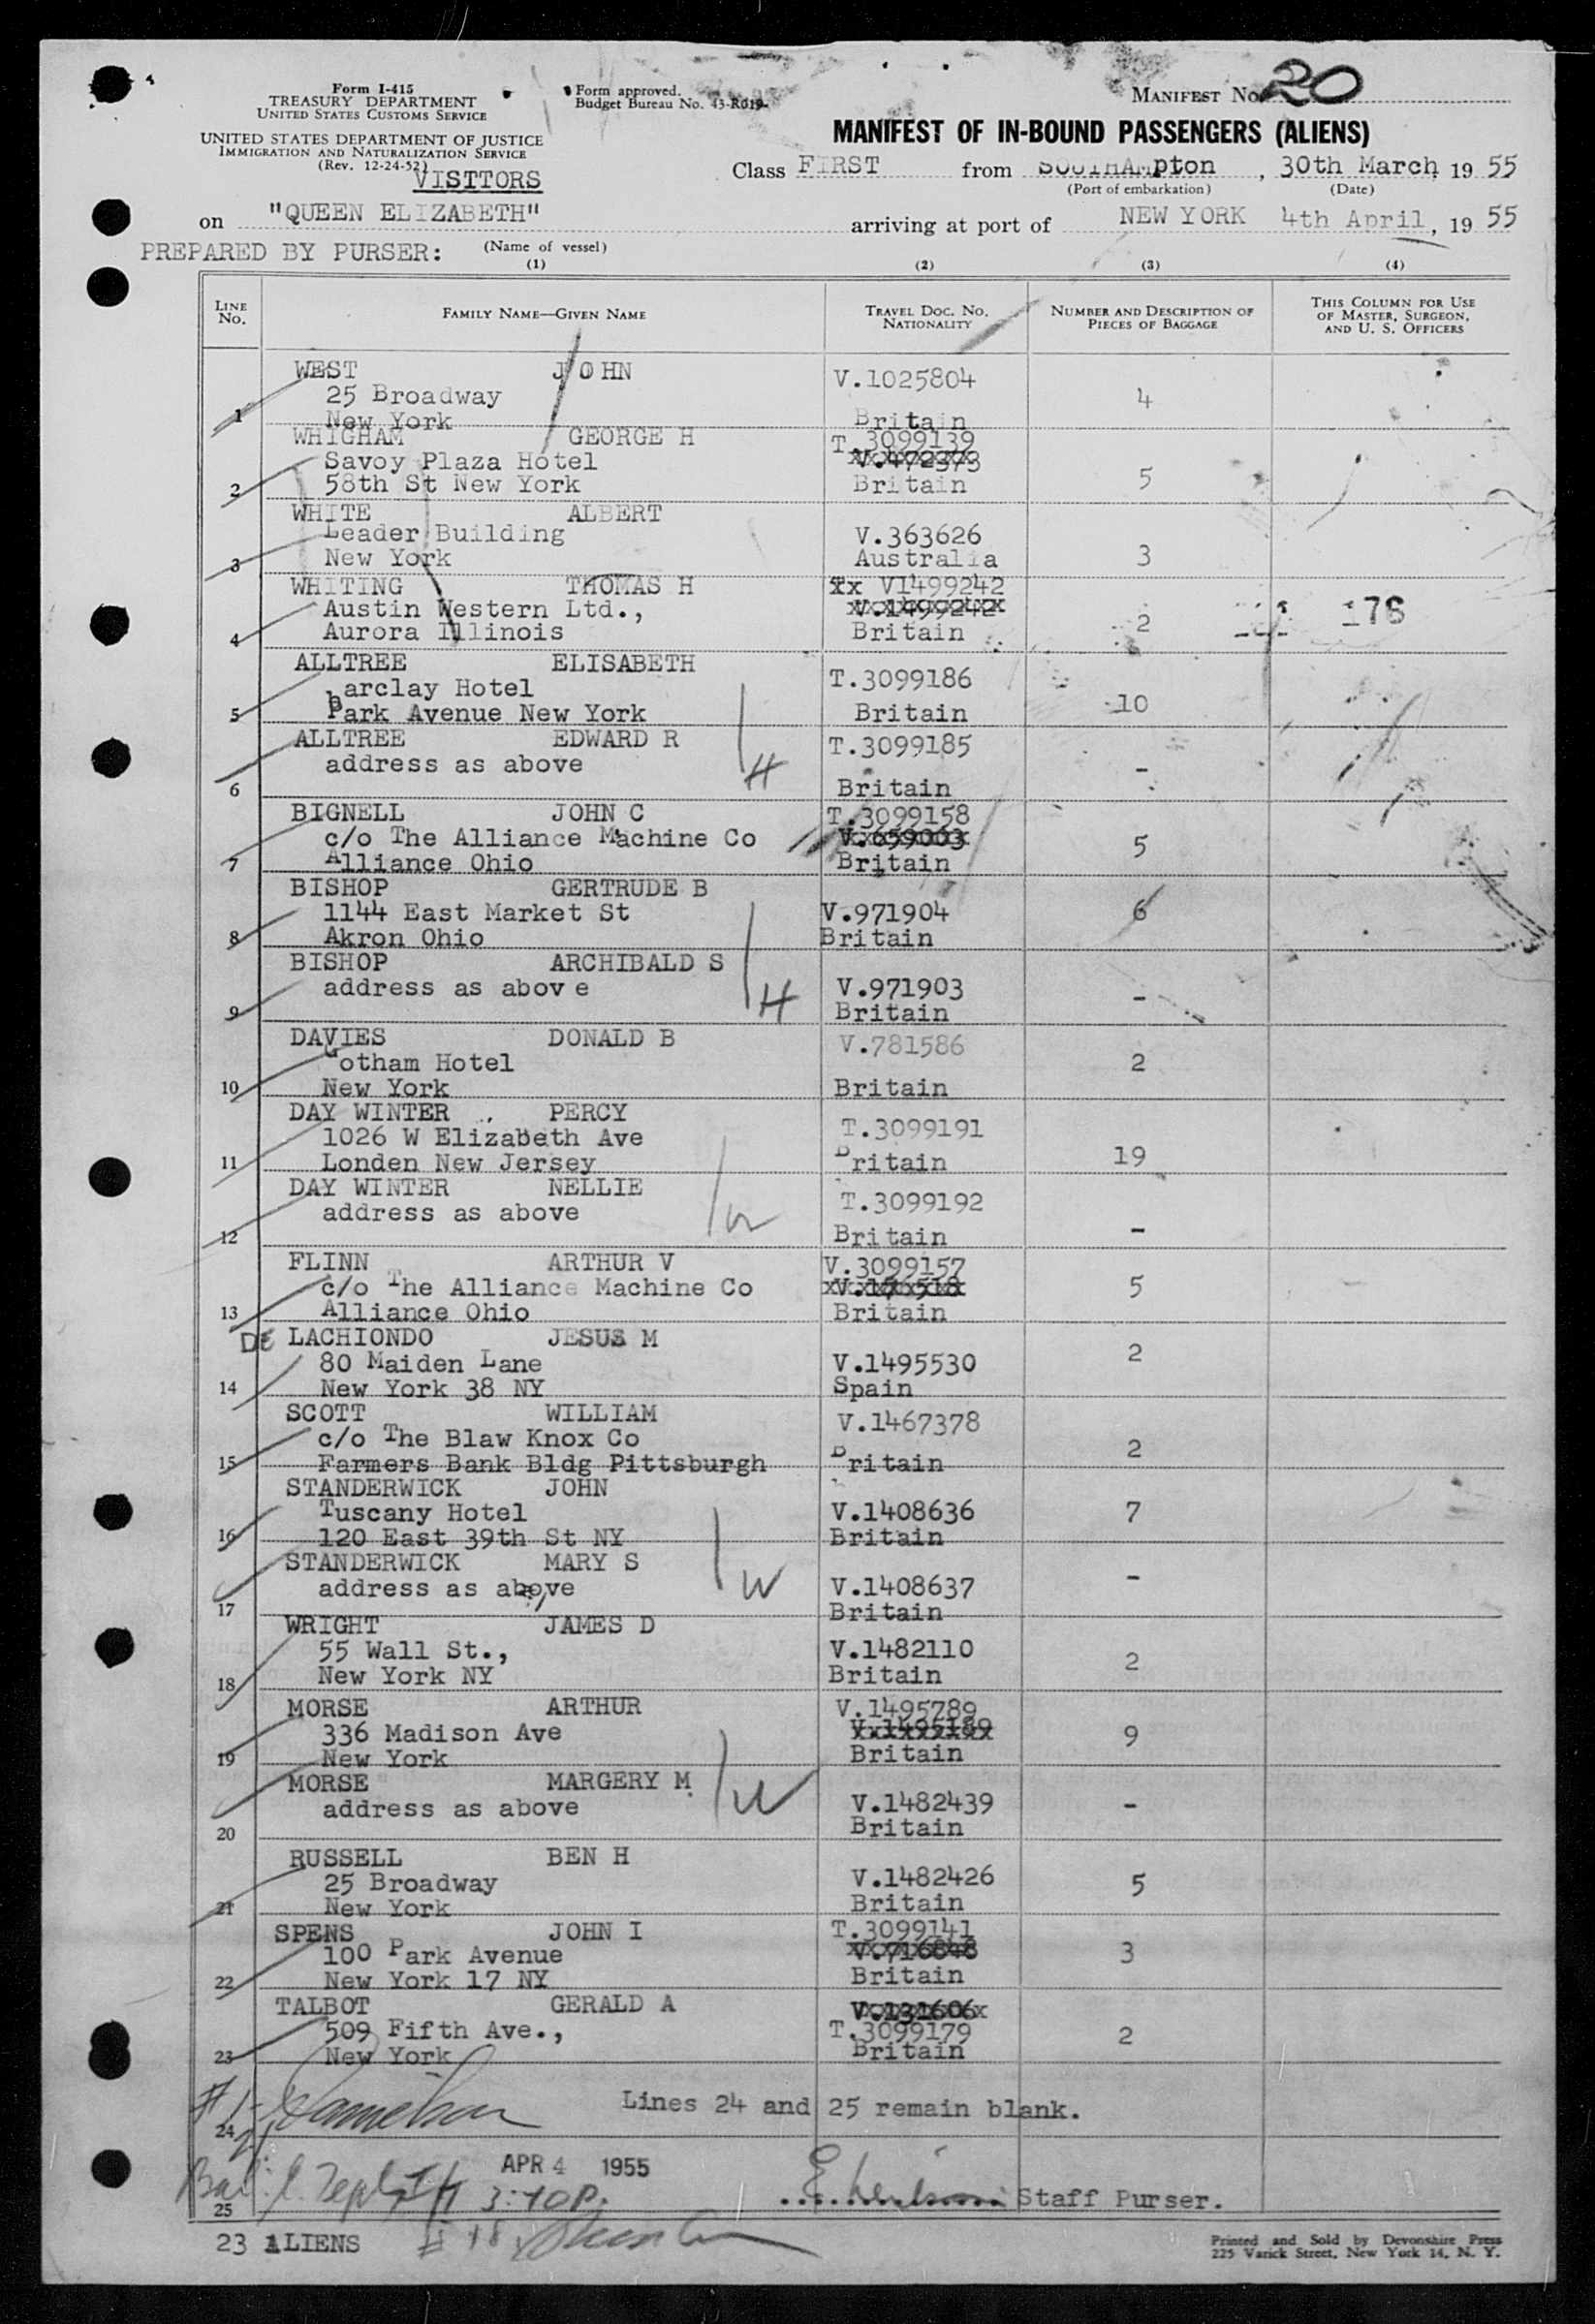 Form I-415
TREASURY DEPARTMENT
UNITED STATES CUSTOMS SERVICE
UNITED STATES DEPARTMENT OF JUSTICE
IMMIGRATION AND NATURALIZATION SERVICE
(Rev. 12-24-52)
VISITORS
Form approved.
Budget Bureau No. 43-R019.
MANIFEST No. 20
MANIFEST OF IN-BOUND PASSENGERS (ALIENS)
Class FIRST from SOUTHAMpton, 30th March, 19 55
(Port of embarkation) (Date)
on "QUEEN ELIZABETH" arriving at port of NEW YORK 4th April, 19 55
PREPARED BY PURSER: (Name of vessel)
(1) (2) (3) (4)
LINE No. FAMILY NAME—GIVEN NAME TRAVEL DOC. No. NATIONALITY NUMBER AND DESCRIPTION OF PIECES OF BAGGAGE THIS COLUMN FOR USE OF MASTER, SURGEON, AND U. S. OFFICERS
WEST JOHN V.1025804
25 Broadway 4
1 New York Britain
WHIGHAM GEORGE H T.3099139
Savoy Plaza Hotel V.472373
2 58th St New York Britain 5
WHITE ALBERT
Leader Building V.363626
3 New York Australia 3
WHITING THOMAS H Tx V1499242
Austin Western Ltd., V.1499242 178
4 Aurora Illinois Britain 2
ALLTREE ELISABETH T.3099186
Barclay Hotel
5 Park Avenue New York Britain 10
ALLTREE EDWARD R T.3099185
address as above H -
6 Britain
BIGNELL JOHN C T.3099158
c/o The Alliance Machine Co V.659003 5
7 Alliance Ohio Britain
BISHOP GERTRUDE B
1144 East Market St V.971904 6
8 Akron Ohio Britain
BISHOP ARCHIBALD S
address as above H V.971903 -
9 Britain
DAVIES DONALD B V.781586
Gotham Hotel 2
10 New York Britain
DAY WINTER PERCY T.3099191
1026 W Elizabeth Ave
11 Londen New Jersey Britain 19
DAY WINTER NELLIE T.3099192
address as above W
12 Britain -
FLINN ARTHUR V V.3099157
c/o The Alliance Machine Co 5
13 Alliance Ohio Britain
DE LACHIONDO JESUS M 2
80 Maiden Lane V.1495530
14 New York 38 NY Spain
SCOTT WILLIAM V.1467378
c/o The Blaw Knox Co 2
15 Farmers Bank Bldg Pittsburgh Britain
STANDERWICK JOHN
Tuscany Hotel V.1408636 7
16 120 East 39th St NY Britain
STANDERWICK MARY S -
address as above W V.1408637
17 Britain
WRIGHT JAMES D
55 Wall St., V.1482110 2
18 New York NY Britain
MORSE ARTHUR V.1495789
336 Madison Ave V.1495189 9
19 New York Britain
MORSE MARGERY M
address as above W V.1482439 -
20 Britain
RUSSELL BEN H
25 Broadway V.1482426 5
21 New York Britain
SPENS JOHN I T.3099141
100 Park Avenue V.716848 3
22 New York 17 NY Britain
TALBOT GERALD A V.131606
509 Fifth Ave., T.3099179 2
23 New York Britain
Lines 24 and 25 remain blank.
24
APR 4 1955
25 3:40P. Staff Purser.
23 ALIENS
Printed and Sold by Devonshire Press
225 Varick Street, New York 14, N. Y.